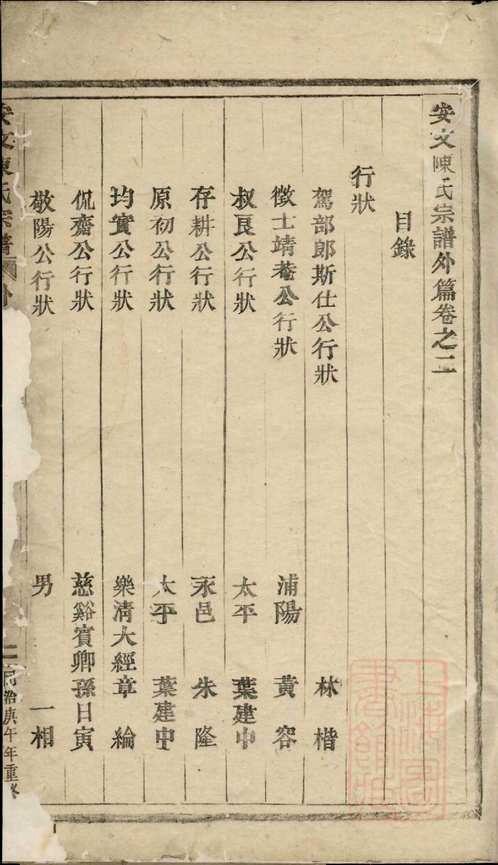 安文陳氏宗譜外篇卷之二
目錄
行狀
駕部郎斯仕公行狀 林楷
徵士靖菴公行狀 浦陽 黄容
叔良公行狀 太平 葉建中
存耕公行狀 永邑 朱隆
原初公行狀 太平 葉建中
均實公行狀 樂清大經章綸
侃齋公行狀 慈谿賓卿孫日寅
敬陽公行狀 男 一相
安文陳氏宗譜 外
同治庚午年重修